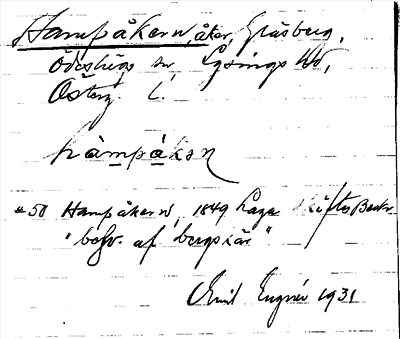 Hampåkern, åker, Gråsberg,
Ödeshögs sn, Lysings hd,
Österg. l.
hàmpåkan
*50 Hampåkern, 1849 Laga skiftes Beskr.
" af bergstär"
Emil Eugnér 1931